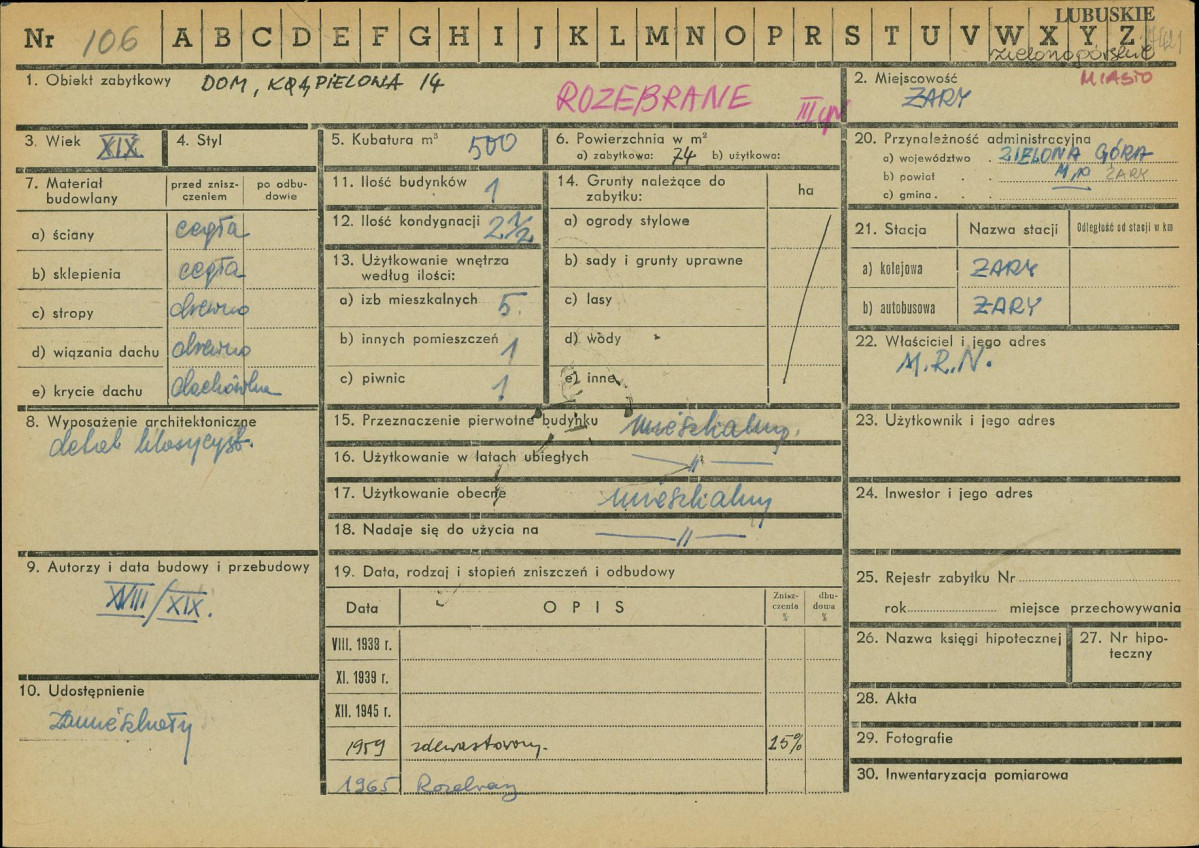 LUBUSKIE
Nr 106 A B C D E F G H I J K L M N O P R S T U V W X Y Z
zielonogórskie
1. Obiekt zabytkowy DOM, KĄPIELOWA 14
ROZEBRANE
2. Miejscowość MIASTO
ŻARY
3. Wiek XIX
4. Styl
5. Kubatura m³ 500
6. Powierzchnia w m²
a) zabytkowa: 74 b) użytkowa:
7. Materiał budowlany
przed zniszczeniem
po odbudowie
a) ściany cegła
b) sklepienia cegła
c) stropy drewno
d) wiązania dachu drewno
e) krycie dachu dachówka
8. Wyposażenie architektoniczne
detal klasycyst.
9. Autorzy i data budowy i przebudowy
XVIII/XIX.
10. Udostępnienie
zamieszkały
11. Ilość budynków 1
12. Ilość kondygnacji 2 1/2
13. Użytkowanie wnętrza
według ilości:
a) izb mieszkalnych 5.
b) innych pomieszczeń 1
c) piwnic 1
14. Grunty należące do
zabytku:
ha
a) ogrody stylowe
b) sady i grunty uprawne
c) lasy
d) wody
e) inne
15. Przeznaczenie pierwotne budynku mieszkalny.
16. Użytkowanie w latach ubiegłych —〃—
17. Użytkowanie obecne mieszkalny
18. Nadaje się do użycia na —〃—
19. Data, rodzaj i stopień zniszczeń i odbudowy
Data OPIS Zniszczenia % dbudowa %
VIII. 1938 r.
XI. 1939 r.
XII. 1945 r.
1959 zdewastowany. 15%
1965 Rozebrany
20. Przynależność administracyjna
a) województwo . ZIELONA GÓRA
b) powiat . . M.p ŻARY
c) gmina . .
21. Stacja Nazwa stacji Odległość od stacji w km
a) kolejowa ŻARY
b) autobusowa ŻARY
22. Właściciel i jego adres
M.R.N.
23. Użytkownik i jego adres
24. Inwestor i jego adres
25. Rejestr zabytku Nr
rok miejsce przechowywania
26. Nazwa księgi hipotecznej
27. Nr hipoteczny
28. Akta
29. Fotografie
30. Inwentaryzacja pomiarowa